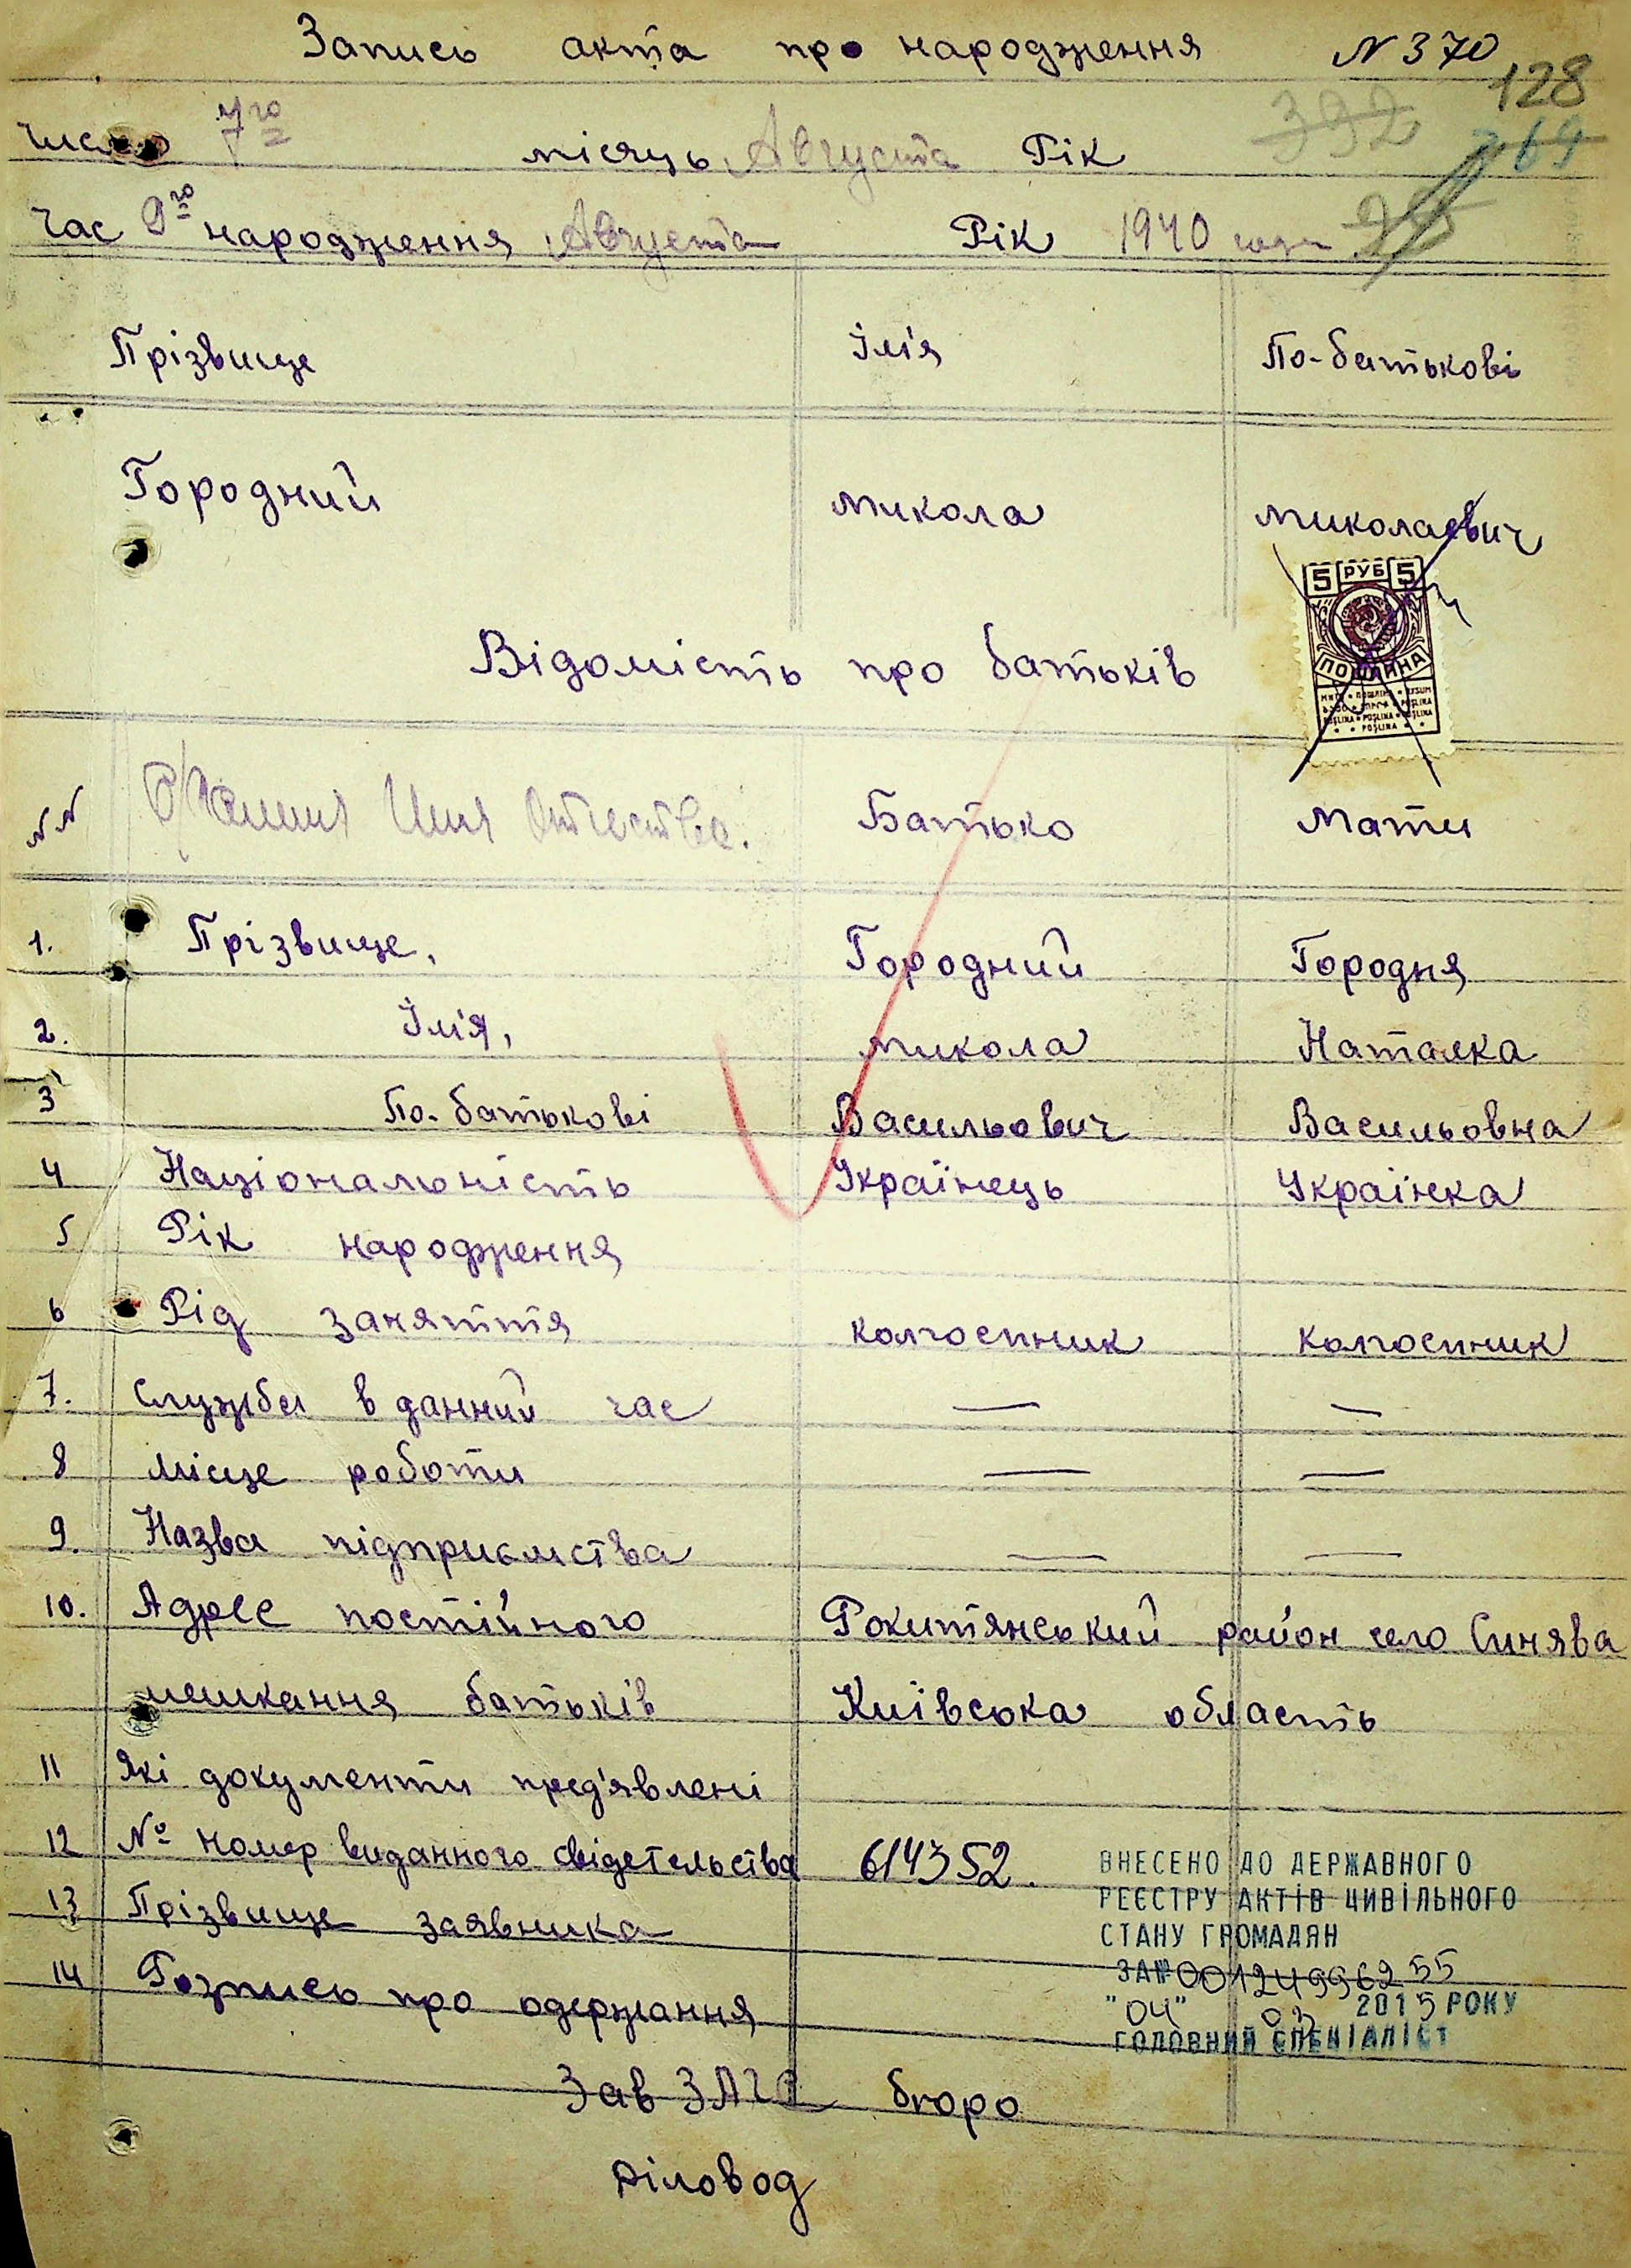 Запись акта про народження N 370
128
число 7го місяць Августа Рік
392 269
Час 9го народження Августа Рік 1940 года
Прізвище Ім'я По-батькові
Городний Микола Миколаевич
5 РУБ 5
ПОШЛИНА
Відомість про батьків
NN Фамилия Имя Отчество. Батько Мати
1. Прізвище, Городний Городня
2. Ім'я, Микола Наталка
3 По-батькові Васильович Васильовна
4 Національність Українець Українка
5 Рік народження
6 Рід заняття колгоспник колгоспник
7. Служба в данний час — —
8 Місце роботи — —
9. Назва підприємства — —
10. Адрес постійного Рокитянський район село Синява
мешкання батьків Київська область
11 Які документи пред'явлені
12 № номер виданного свідетельства 614352.
13 Прізвище заявника
14 Розпись про одержання
ВНЕСЕНО ДО ДЕРЖАВНОГО
РЕЄСТРУ АКТІВ ЦИВІЛЬНОГО
СТАНУ ГРОМАДЯН
ЗА № 00124996255
"04" 03 2015 РОКУ
ГОЛОВНИЙ СПЕЦІАЛІСТ
Зав ЗАГС бюро
Діловод